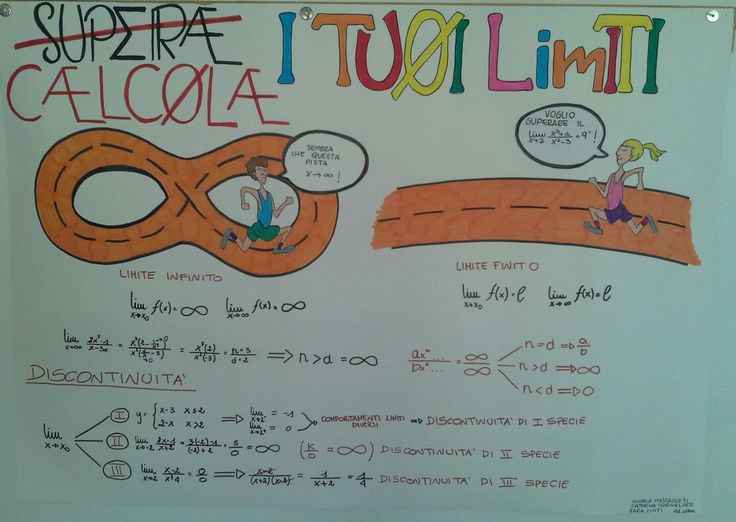 SUPERÆ
CÆLCOLÆ I TUOI LIMITI
SEMBRA
CHE QUESTA
PISTA
x→∞ !
VOGLIO
SUPERARE IL
lim x→2 x³+1/x²-3 = 9" !
LIMITE INFINITO
lim x→x₀ f(x)=∞ lim x→∞ f(x)=∞
LIMITE FINITO
lim x→x₀ f(x)=ℓ lim x→∞ f(x)=ℓ
= x³(2)/x²(-3) = n=3/d=2 ⇒ n>d = ∞
axⁿ.../bxᵈ... = ∞/∞
n=d ⇒ a/b
n>d ⇒ ∞
n<d ⇒ 0
DISCONTINUITA'
lim x→x₀
I y= { x-3 x≤2
2-x x>2
⇒ lim x→2⁻ = -1
lim x→2⁺ = 0
COMPORTAMENTI LIMITI
DIVERSI
⇒ DISCONTINUITA' DI I SPECIE
II lim x→-2 2x-1/x+2 = = 5/0 = ∞ (k/0 = ∞) DISCONTINUITA' DI II SPECIE
III lim x→2 x-2/x²-4 = 0/0 ⇒ x-2/(x+2)(x-2) = 1/x+2 = 1/4 DISCONTINUITA' DI III SPECIE
SARA CINTI